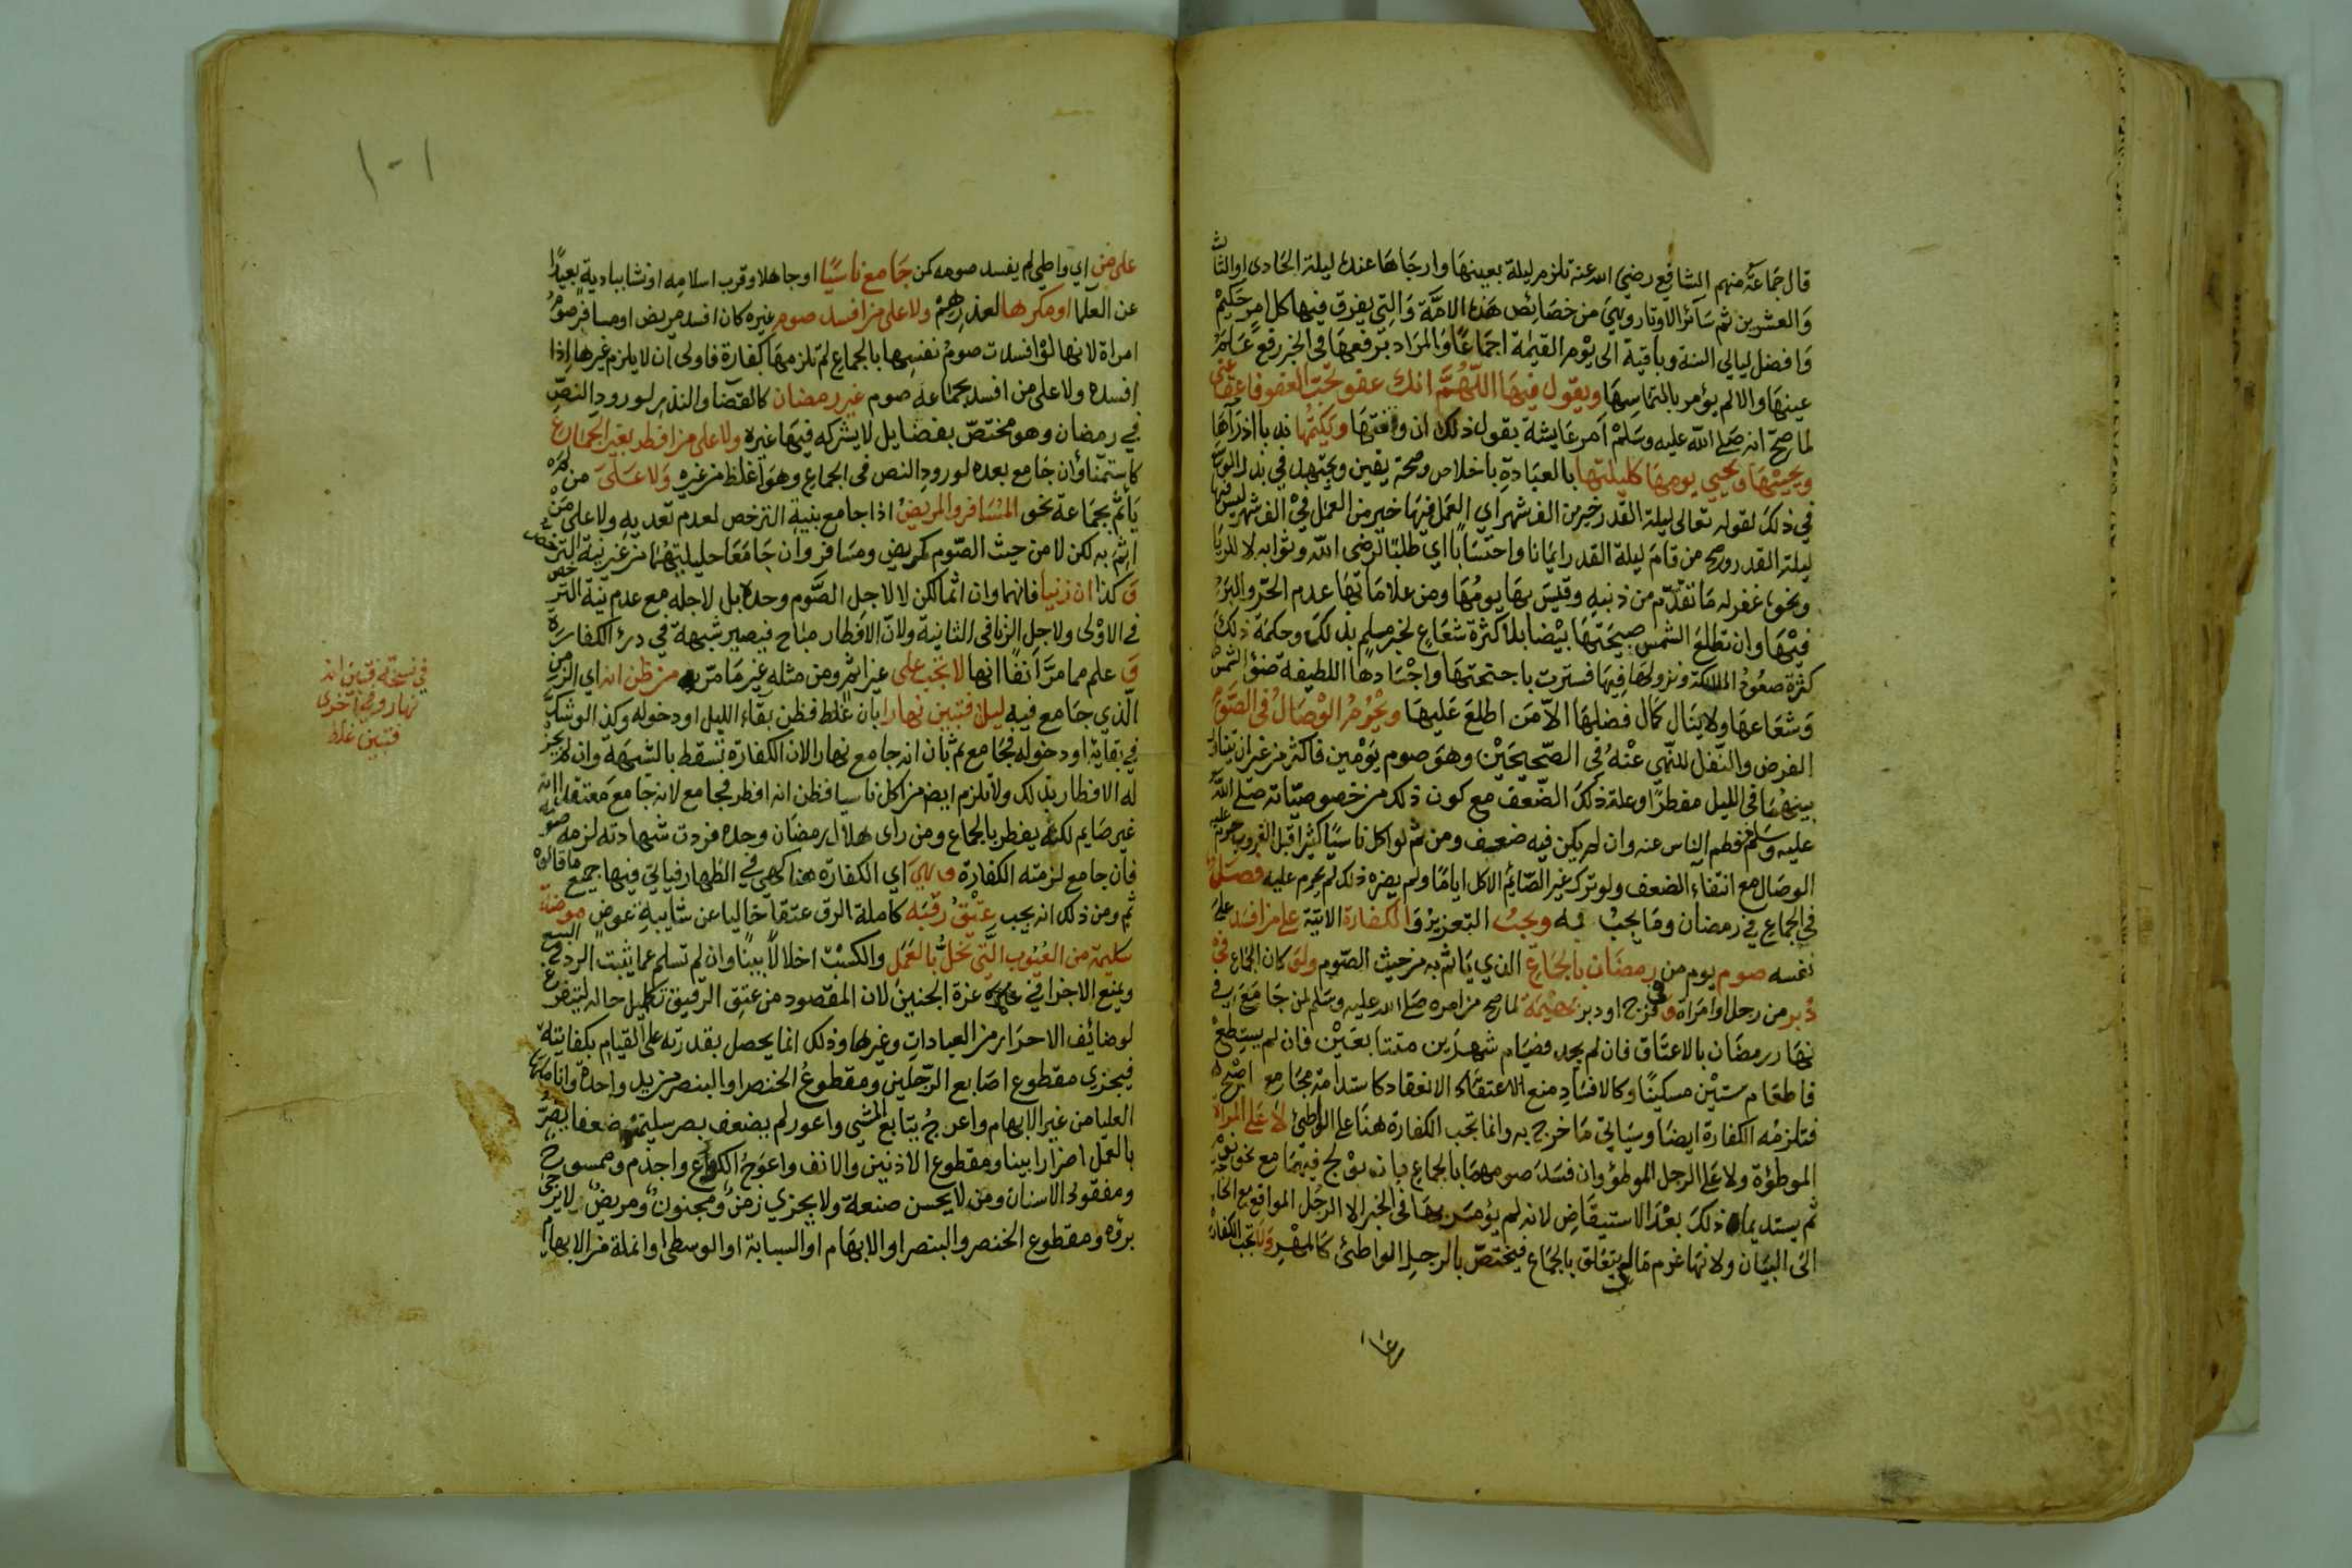 قال جماعة منهم الشافعي رضي الله عنه تلزم ليلة بعينها وارجاها عنده ليلة الحادي او الثالث
والعشرين ثم سائر الاوتار وهي من خصائص هذه الامة والتي يفرق فيها كل امر حكيم
وافضل ليالي السنة وباقية الى يوم القيمة اجماعا والمراد برفعها في الخبر رفع علم
عينها والا لم يؤمر بالتماسها ويقول فيها اللهم انك عفو تحب العفو فاعف عني
لما صح انه صلى الله عليه وسلم امر عايشة بقول ذلك ان وافقتها ويكتمها ندبا اذا رآها
ويحييها ويحيي يومها كليلتها بالعبادة باخلاص وصحة يقين ويجتهد في بذل الوسع
في ذلك لقوله تعالى ليلة القدر خير من الف شهر اي العمل فيها خير من العمل في الف شهر ليس فيها
ليلة القدر وصح من قام ليلة القدر ايمانا واحتسابا اي طلبا لرضى الله وثوابه لا للريا
ونحوه غفر له ما تقدم من ذنبه وقيس بها يومها ومن علاماتها عدم الحر والبرد
فيها وان تطلع الشمس صبيحتها بيضا بلا كثرة شعاع لخبر مسلم بذلك وحكمة ذلك
كثرة صعود الملائكة ونزولها فيها فسترت باجنحتها واجسادها اللطيفة ضوء الشمس
وشعاعها ولا ينال كمال فضلها الا من اطلع عليها ويحرم الوصال في الصوم
الفرض والنفل للنهي عنه في الصحيحين وهو صوم يومين فاكثر من غير ان يتناول
بينهما في الليل مفطرا وعلة ذلك الضعف مع كون ذلك من خصوصياته صلى الله
عليه وسلم ففطم الناس عنه وان لم يكن فيه ضعف ومن ثم لو اكل ناسيا كثيرا قبل الغروب حرم عليه
الوصال مع انتفاء الضعف ولو ترك غير الصايم الاكل اياما ولم يضره ذلك لم يحرم عليه فصل
في الجماع في رمضان وما يجب به ويجب التعزير والكفارة الاتية على من افسد على
نفسه صوم يوم من رمضان بالجماع الذي ياثم به من حيث الصوم ولو كان الجماع في
دبر من رجل او امراة وفي فرج او دبر بهيمة لما صح من امره صلى الله عليه وسلم لمن جامع في
نهار رمضان بالاعتاق فان لم يجد فصيام شهرين متتابعين فان لم يستطع
فاطعام ستين مسكينا وكالافساد منع الانعقاد كاستدامة مجامع اصبح
فتلزمه الكفارة ايضا وسياتي ما خرج به وانما تجب الكفارة هنا على الواطئ لا على المراة
الموطؤة ولا على الرجل الموطؤ وان فسد صومهما بالجماع بان يولج فيهما مع نحو نوم
ثم يستديما ذلك بعد الاستيقاظ لانه لم يؤمر بها في الخبر الا الرجل المواقع مع الحاجة
الى البيان ولانها غرم مالي يتعلق بالجماع فيختص بالرجل الواطئ كالمهر ولا تجب الكفارة
١٠١
على من اي واطي لم يفسد صومه كمن جامع ناسيا او جاهلا وقرب اسلامه او نشا ببادية بعيدا
عن العلما او مكرها لعذرهم ولا على من افسد صوم غيره كان افسد مريض او مسافر صوم
امراة لانها لو افسدت صوم نفسها بالجماع لم تلزمها كفارة فاولى ان لا يلزم غيرها اذا
افسده ولا على من افسد بجماعه صوم غير رمضان كالقضا والنذر لورود النص
في رمضان وهو مختص بفضايل لا يشركه فيها غيره ولا على من افطر بغير الجماع
كاستمنا وان جامع بعده لورود النص في الجماع وهو اغلظ من غيره ولا على من لم
ياثم بجماعه نحو المسافر والمريض اذا جامع بنية الترخص لعدم تعديه ولا على من
اثم به لكن لا من حيث الصوم كمريض ومسافر وان جامعا حليلتهما من غير نية الترخص
وكذا ان زنيا فانهما وان اثما لكن لا لاجل الصوم وحده بل لاجله مع عدم نية الترخص
في الاولى ولاجل الزنا في الثانية ولان الافطار مباح فيصير شبهة في درء الكفارة
وعلم مما مر انفا انها لا تجب على غير اثم ومن مثله غير ما مر من ظن انه اي الزمن
الذي جامع فيه ليل فتبين نهارا بان غلط فظن بقاء الليل او دخوله وكذا لو شك
في بقايه او دخوله فجامع ثم بان انه جامع نهارا لان الكفارة تسقط بالشبهة وان لم يجز
له الافطار بذلك ولا تلزم ايضا من اكل ناسيا فظن انه افطر فجامع لانه جامع معتقدا انه
غير صايم لكنه يفطر بالجماع ومن راى هلال رمضان وحده فردت شهادته لزمه صومه
فان جامع لزمته الكفارة وهي اي الكفارة هنا كهي في الظهار فياتي فيها جميع ما قالوه
ثم ومن ذلك انه يجب عتق رقبة كاملة الرق عتقا خاليا عن شايبة عوض مومنة
سليمة من العيوب التي تخل بالعمل والكسب اخلالا بينا وان لم تسلم عما يثبت الرد في البيع
ويمنع الاجزا في غرة الجنين لان المقصود من عتق الرقيق تكميل حاله ليتفرغ
لوضائف الاحرار من العبادات وغيرها وذلك انما يحصل بقدرته على القيام بكفايته
فيجزي مقطوع اصابع الرجلين ومقطوع الخنصر او البنصر من يد واحدة وانامله
العليا من غير الابهام واعرج يتابع المشي واعور لم يضعف بصر سليمته ضعفا يضر
بالعمل اضرارا بينا ومقطوع الاذنين والانف واعوج الكوع واجذم وممسوح
ومفقود الاسنان ومن لا يحسن صنعة ولا يجزي زمن ومجنون ومريض لا يرجى
برؤه ومقطوع الخنصر والبنصر او الابهام او السبابة او الوسطى او انملة من الابهام
في نسخة فتبين انه
نهار وفي اخرى
فتبين غلط